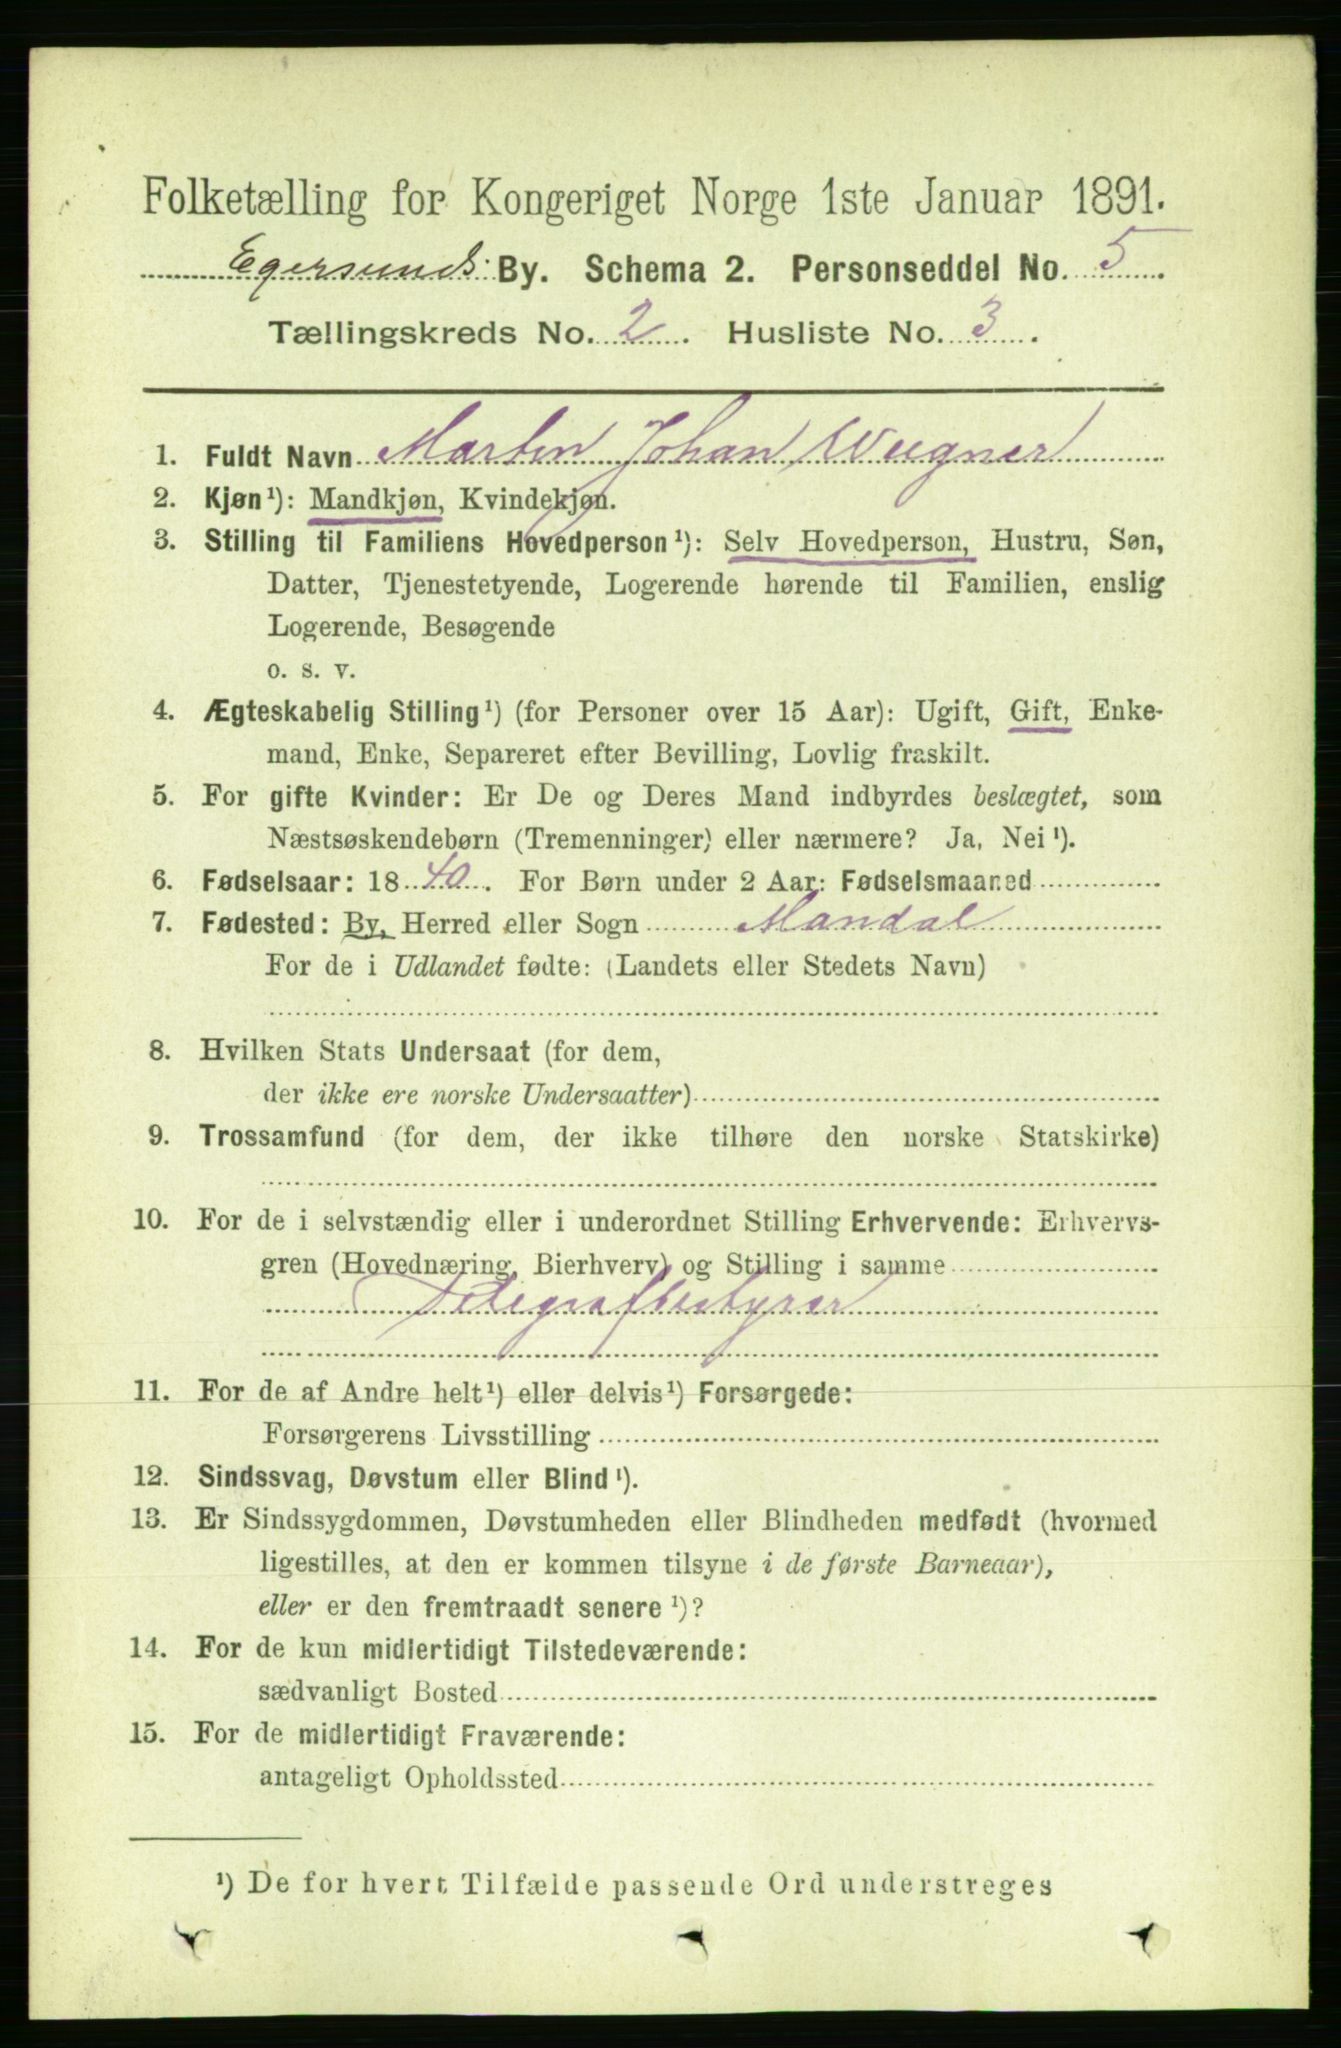 Folketælling for Kongeriget Norge 1ste Januar 1891.
Egersunds By. Schema 2. Personseddel No. 5.
Tællingskreds No. 2. Husliste No. 3.
1. Fuldt Navn Martin Johan Wegner
2. Kjøn¹): Mandkjøn, Kvindekjøn.
3. Stilling til Familiens Hovedperson¹): Selv Hovedperson, Hustru, Søn,
Datter, Tjenestetyende, Logerende hørende til Familien, enslig
Logerende, Besøgende
o. s. v.
4. Ægteskabelig Stilling¹) (for Personer over 15 Aar): Ugift, Gift, Enke-
mand, Enke, Separeret efter Bevilling, Lovlig fraskilt.
5. For gifte Kvinder: Er De og Deres Mand indbyrdes beslægtet, som
Næstsøskendebørn (Tremenninger) eller nærmere? Ja, Nei¹).
6. Fødselsaar: 1840. For Børn under 2 Aar: Fødselsmaaned
7. Fødested: By, Herred eller Sogn Mandal
For de i Udlandet fødte: (Landets eller Stedets Navn)
8. Hvilken Stats Undersaat (for dem,
der ikke ere norske Undersaatter)
9. Trossamfund (for dem, der ikke tilhøre den norske Statskirke)
10. For de i selvstændig eller i underordnet Stilling Erhvervende: Erhvervs-
gren (Hovednæring, Bierhverv) og Stilling i samme
Telegrafbestyrer
11. For de af Andre helt¹) eller delvis¹) Forsørgede:
Forsørgerens Livsstilling
12. Sindssvag, Døvstum eller Blind¹).
13. Er Sindssygdommen, Døvstumheden eller Blindheden medfødt (hvormed
ligestilles, at den er kommen tilsyne i de første Barneaar),
eller er den fremtraadt senere¹)?
14. For de kun midlertidigt Tilstedeværende:
sædvanligt Bosted
15. For de midlertidigt Fraværende:
antageligt Opholdssted
¹) De for hvert Tilfælde passende Ord understreges